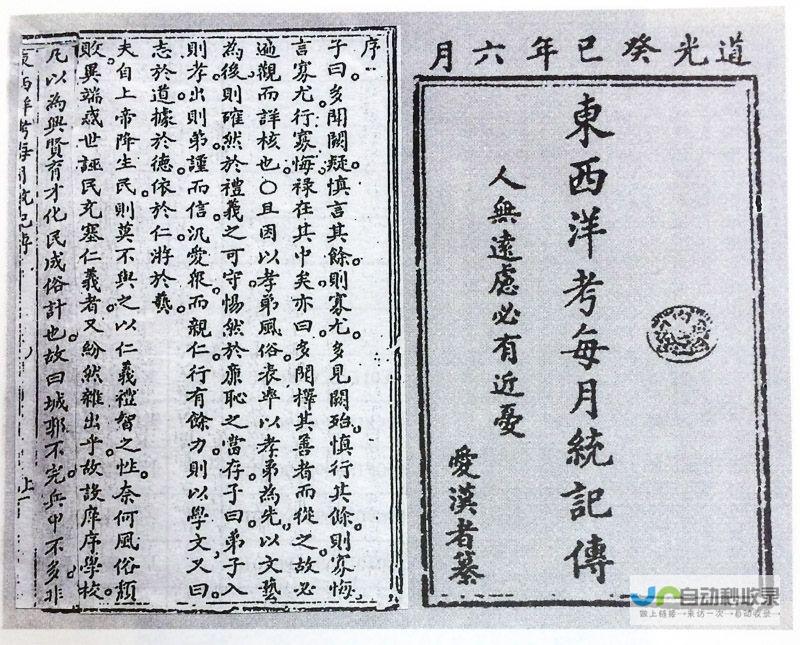 道光癸巳年六月
東西洋考每月統記傳
人無遠慮必有近憂
愛漢者纂
序
子曰。多聞闕疑。慎言其餘。則寡尤。多見闕殆。慎行其餘。則寡悔。
言寡尤。行寡悔。祿在其中矣。亦曰。多聞擇其善者而從之。故必
遍觀而詳核也。○且因以孝弟風俗。表率以孝弟為先。以文藝
為後。則確然於禮義之可守。惕然於廉恥之當存。子曰。弟子入
則孝。出則弟。謹而信。汎愛眾。而親仁。行有餘力。則以學文。又曰。
志於道。據於德。依於仁。游於藝。
夫自上帝降生民。則莫不與之以仁義禮智之性。奈何風俗頹
敗。異端惑世誣民。充塞仁義者。又紛然雜出乎。故設庠序學校。
凡以為興賢育才。化民成俗計也。故曰。城郭不完。兵甲不多。非
東西洋考每月統記傳
自动秒收录
做上链接→来访一次→自动收录